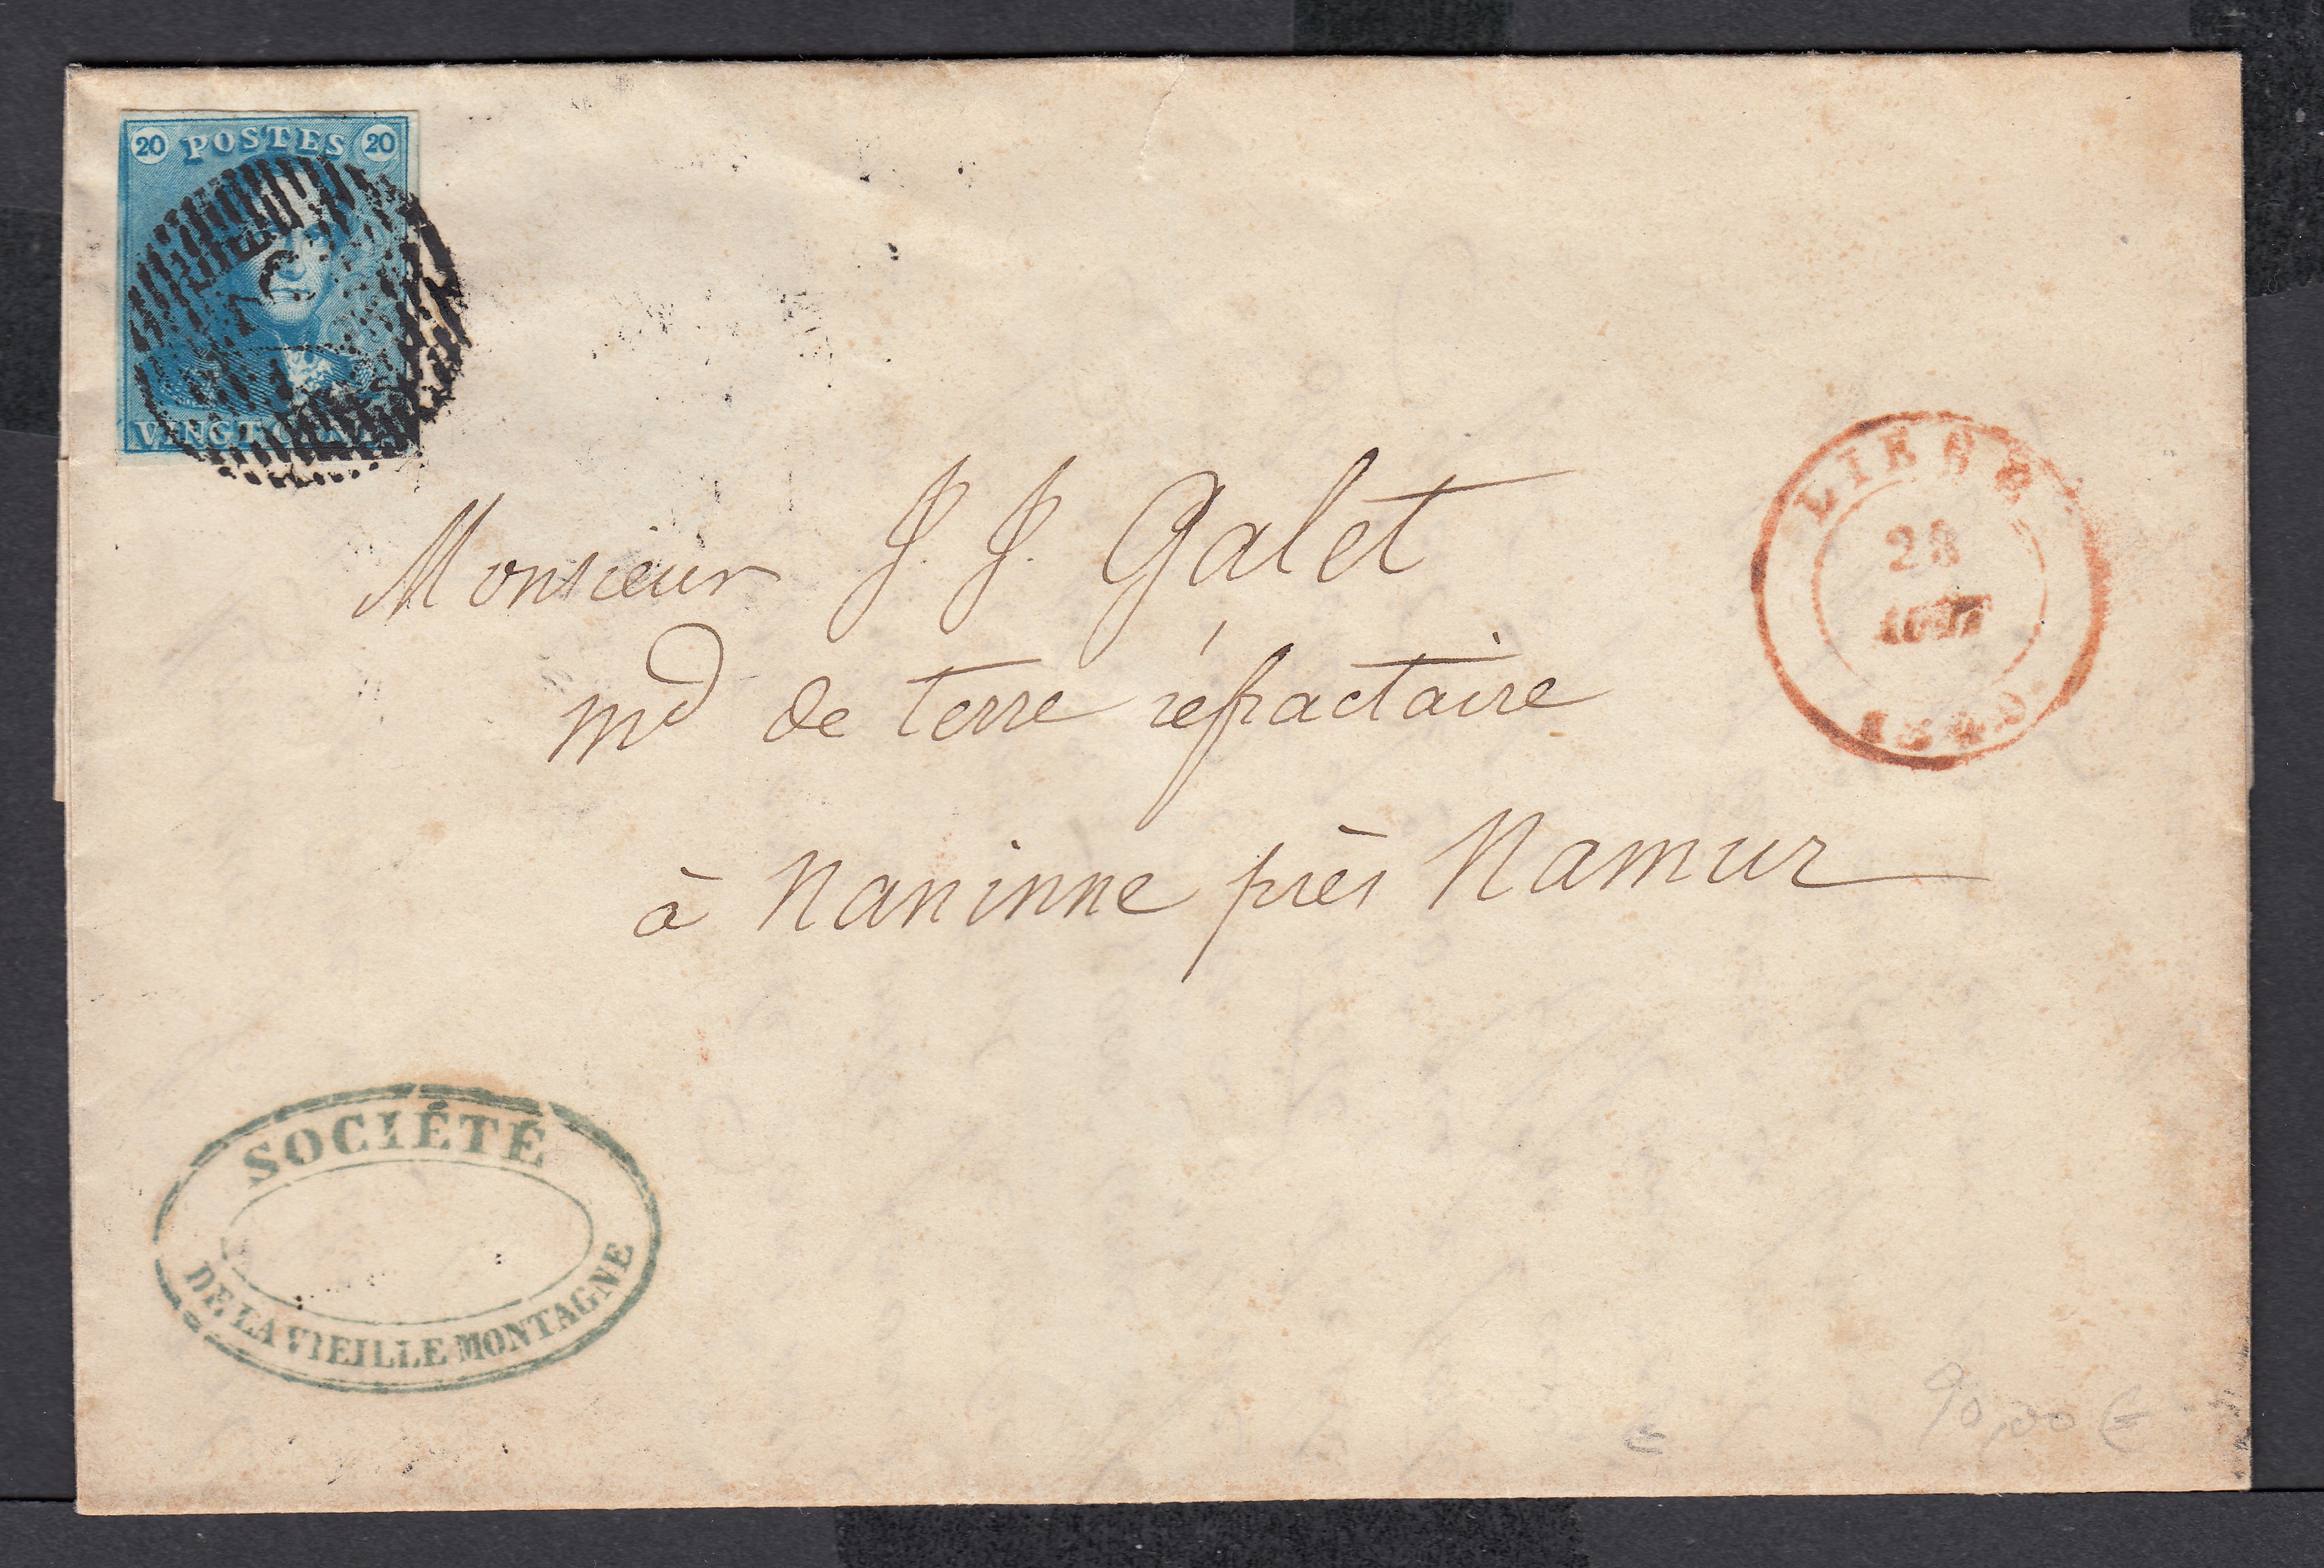 20 POSTES 20
VINGT CENTS
LIEGE
28
AOUT
1849
Monsieur J. J. Galet
md de terre réfractaire
à Naninne près Namur
SOCIÉTÉ
DE LA VIEILLE MONTAGNE
90,00 €